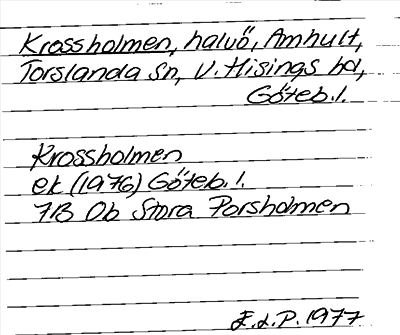 Krossholmen, halvö, Amhult,
Torslanda sn, V. Hisings hd,
Göteb. l.
Krossholmen
ek (1976) Göteb. l.
7B 0b Stora Porsholmen
E.L.P. 1977